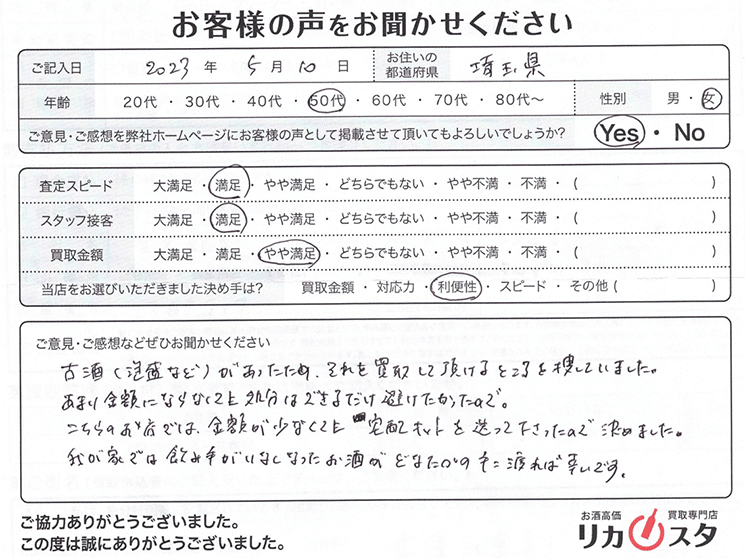 お客様の声をお聞かせください
ご記入日 2023 年 5 月 10 日 お住いの都道府県 埼玉県
年齢 20代 ・ 30代 ・ 40代 ・ 50代 ・ 60代 ・ 70代 ・ 80代〜 性別 男 ・ 女
ご意見・ご感想を弊社ホームページにお客様の声として掲載させて頂いてもよろしいでしょうか? Yes ・ No
査定スピード 大満足 ・ 満足 ・ やや満足 ・ どちらでもない ・ やや不満 ・ 不満 ・ ( )
スタッフ接客 大満足 ・ 満足 ・ やや満足 ・ どちらでもない ・ やや不満 ・ 不満 ・ ( )
買取金額 大満足 ・ 満足 ・ やや満足 ・ どちらでもない ・ やや不満 ・ 不満 ・ ( )
当店をお選びいただきました決め手は? 買取金額 ・ 対応力 ・ 利便性 ・ スピード ・ その他 ( )
ご意見・ご感想などぜひお聞かせください
古酒(泡盛など)があったため、それを買取して頂けるところを捜していました。
あまり金額にならなくても処分はできるだけ避けたかったので。
こちらのお店では、金額が少なくても宅配キットを送って下さったので決めました。
我が家では飲み手がいなくなったお酒がどなたかの手に渡れば幸いです。
ご協力ありがとうございました。
この度は誠にありがとうございました。
お酒高価 買取専門店
リカスタ